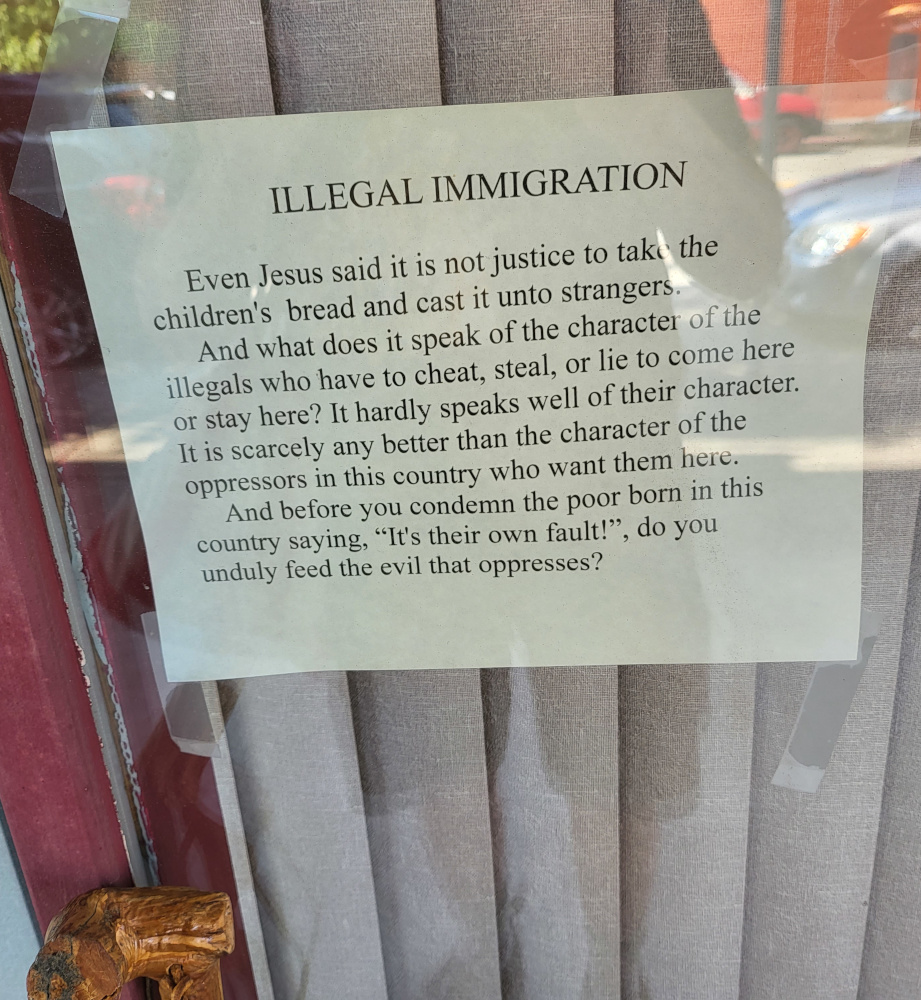 ILLEGAL IMMIGRATION
Even Jesus said it is not justice to take the
children's bread and cast it unto strangers.
And what does it speak of the character of the
illegals who have to cheat, steal, or lie to come here
or stay here? It hardly speaks well of their character.
It is scarcely any better than the character of the
oppressors in this country who want them here.
And before you condemn the poor born in this
country saying, “It's their own fault!”, do you
unduly feed the evil that oppresses?